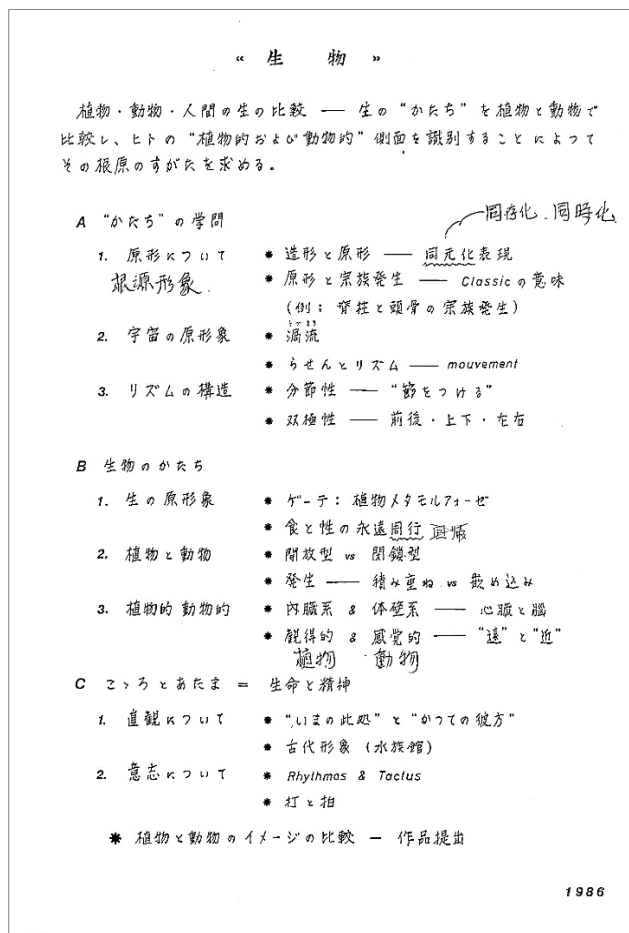 « 生 物 »
植物・動物・人間の生の比較 — 生の “かたち” を植物と動物で
比較し、ヒトの “植物的および動物的” 側面を識別することによって
その根原のすがたを求める。
同存化．同時化
A “かたち” の学問
1. 原形について * 造形と原形 — 同元化表現
根源形象． * 原形と宗族発生 — Classicの意味
(例; 脊柱と頭骨の宗族発生)
2. 宇宙の原形象 * 渦流
* らせんとリズム — mouvement
3. リズムの構造 * 分節性 — “節をつける”
* 双極性 — 前後・上下・左右
B 生物のかたち
1. 生の原形象 * ゲーテ: 植物メタモルフォーゼ
* 食と性の永遠周行 回帰
2. 植物と動物 * 開放型 vs 閉鎖型
* 発生 — 積み重ね vs 嵌め込み
3. 植物的 動物的 * 内臓系 & 体壁系 — 心臓と脳
* 観得的 & 感覚的 — “遠” と “近”
植物 動物
C こゝろとあたま = 生命と精神
1. 直観について * “いまの此処” と “かつての彼方”
* 古代形象 (水族館)
2. 意志について * Rhythmos & Tactus
* 打と拍
* 植物と動物のイメージの比較 — 作品提出
1986